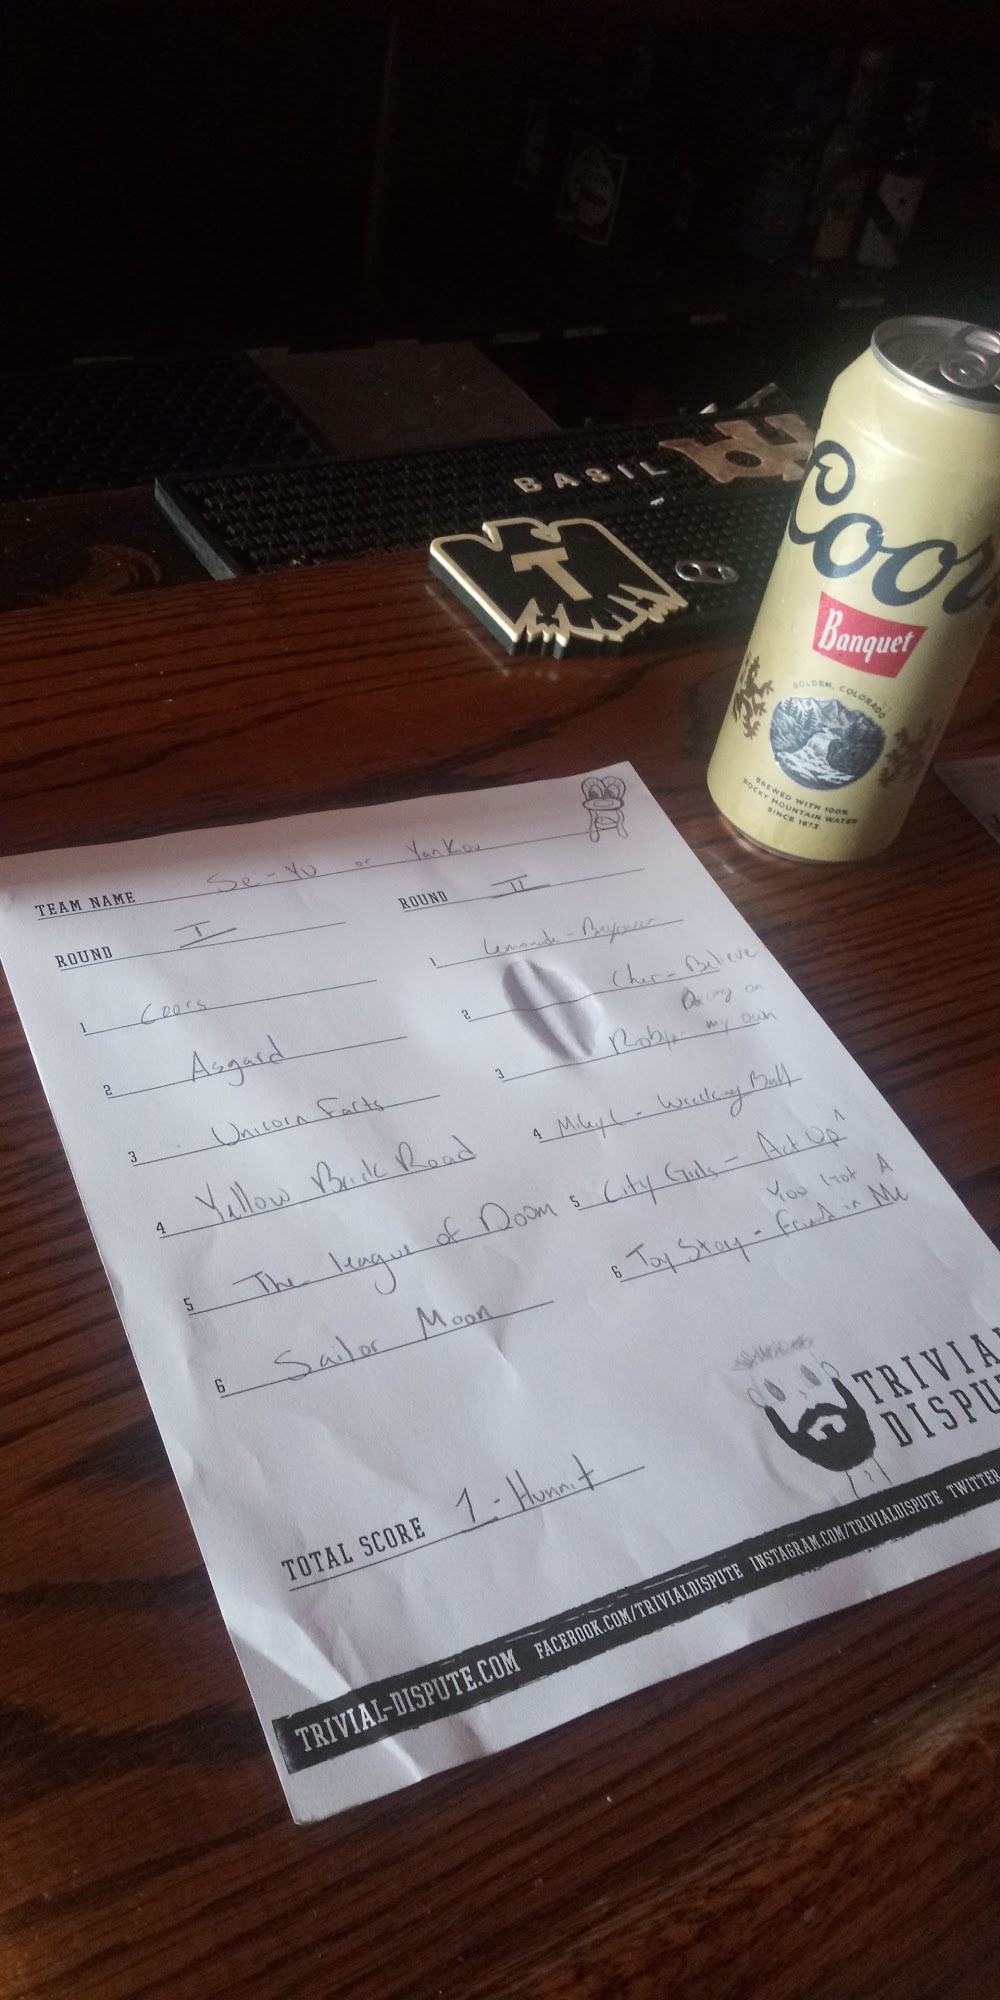 BASIL
T
Coors
Banquet
GOLDEN, COLORADO
BREWED WITH 100%
ROCKY MOUNTAIN WATER
SINCE 1873
TEAM NAME Se-Yu or YanKou
ROUND I
1 Coors
2 Asgard
3 Unicorn Farts
4 Yellow Brick Road
5 The league of Doom
6 Sailor Moon
ROUND II
1 Lemonade -
2 Cher - Believe
Dancing on
3 Robyn - my own
4 Miley C - Wrecking Ball
5 City Girls - Act Up
You Got A
6 Toy Story - Friend in Me
TOTAL SCORE 1 - Hunnit
TRIVIA
DISPU
TRIVIAL-DISPUTE.COM FACEBOOK.COM/TRIVIALDISPUTE INSTAGRAM.COM/TRIVIALDISPUTE TWITTER